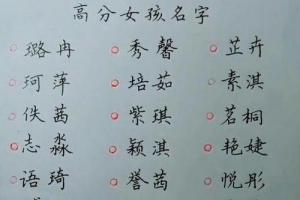 高分女孩名字
璐冉 秀馨 芷卉
珂萍 培茹 素淇
佚茜 紫琪 茗桐
志淼 颖淇 艳婕
语琦 誉茜 悦彤